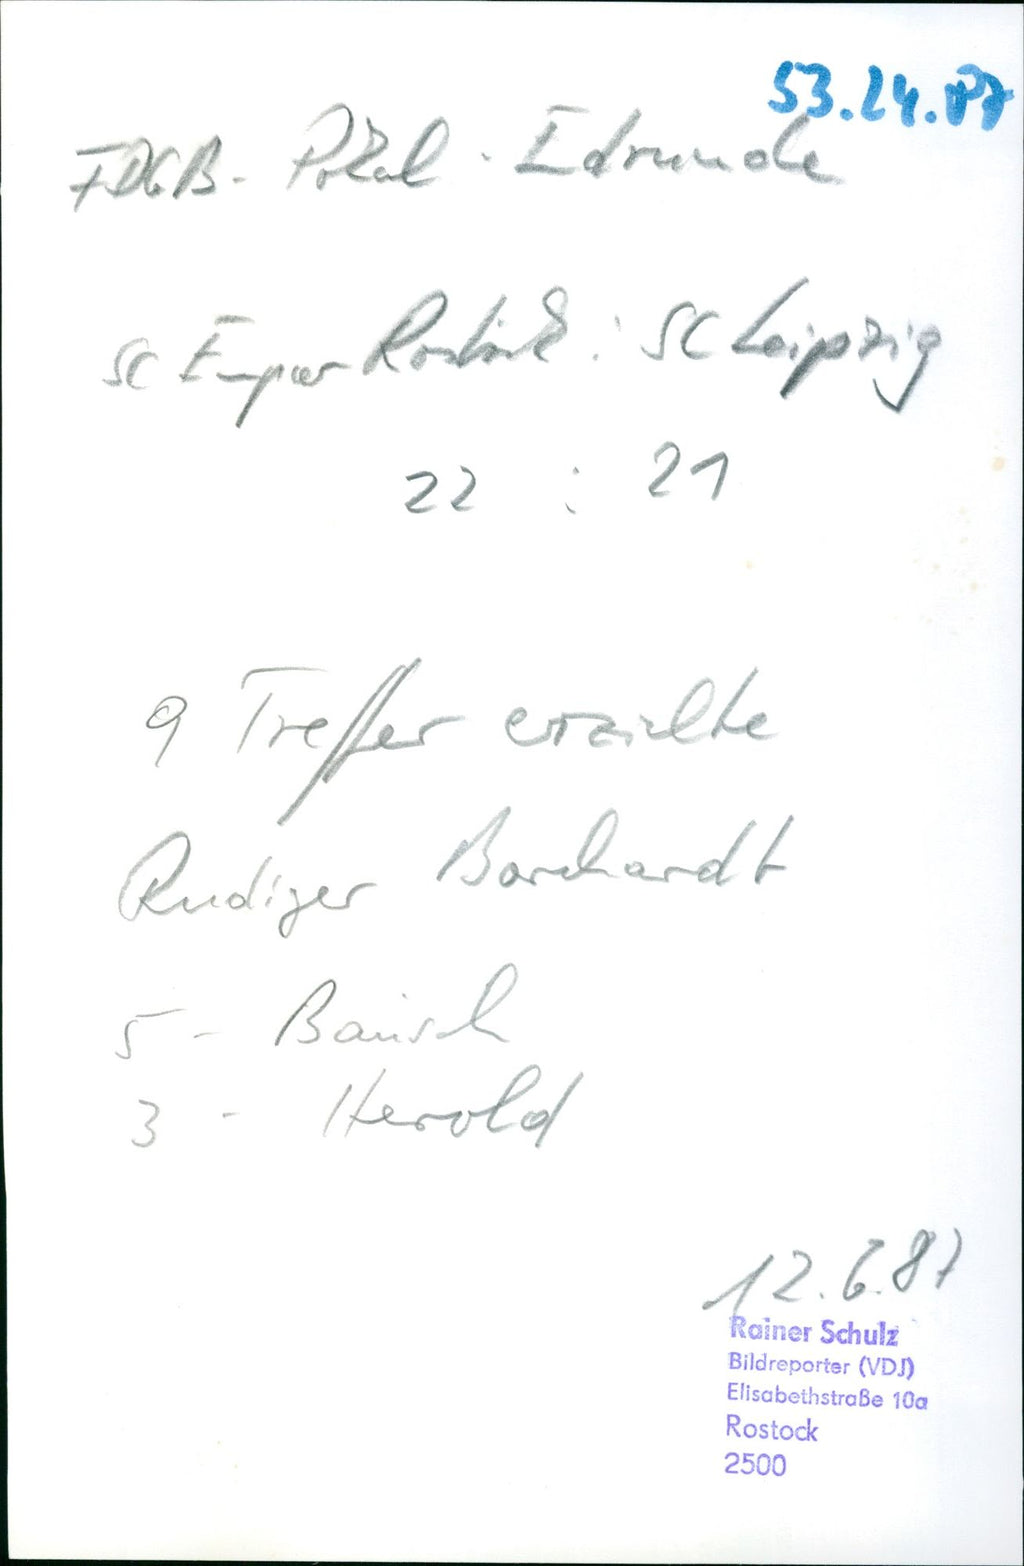 53.24.87
FDGB-Pokal-Edrunde
SC Empor Rostock : SC Leipzig
22 : 21
9 Treffer erzielte
Rudiger Borchardt
5 - Bansch
3 - Herold
12.6.87
Rainer Schulz
Bildreporter (VDJ)
Elisabethstraße 10a
Rostock
2500